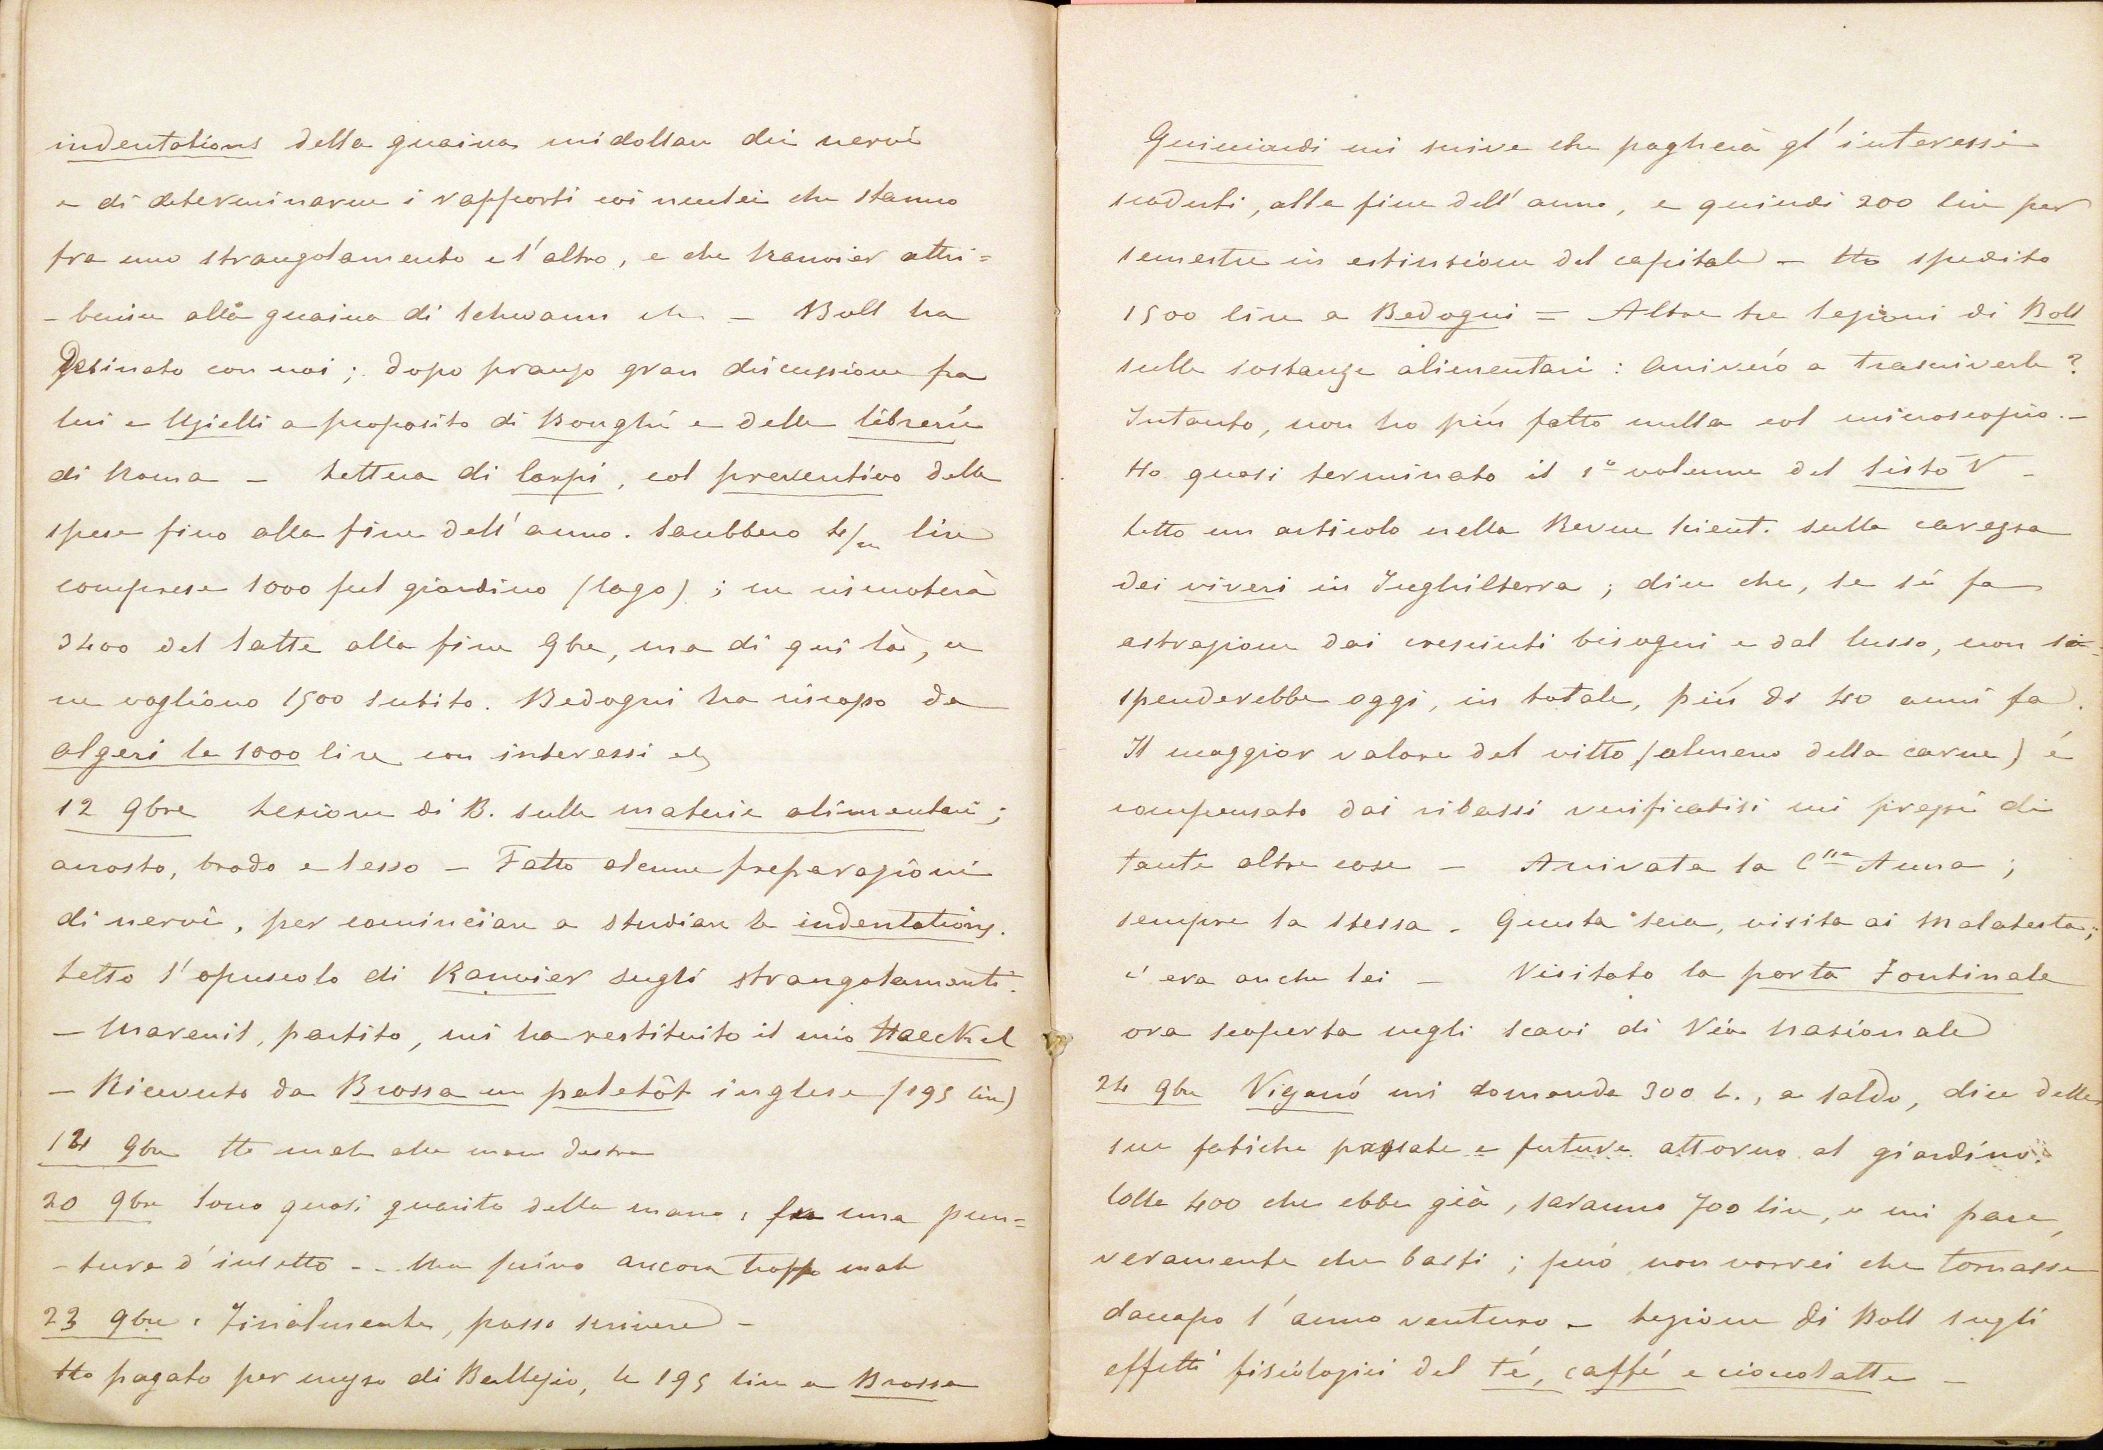 indentations della guaina midollare dei nervi
e di determinarne i rapporti coi nuclei che stanno
fra uno strangolamento e l'altro, e che Ranvier attri=
-buisce alla guaina di Schwann etc. — Boll ha
desinato con noi; dopo pranzo gran discussione fra
lui e Uzielli a proposito di Bonghi e delle librerie
di Roma — Lettera di Carpi, col preventivo delle
spese fino alla fine dell'anno. Sarebbero 4/m lire
comprese 1000 pel giardino (lago); ne riscoterà
3400 del latte alla fine 9bre, ma di qui là, ce
ne vogliono 1500 subito. Bedogni ha riscosso da
Algeri le 1000 lire con interessi etc
12 9bre Lezione di B. sulle materie alimentari;
arrosto, brodo e lesso — Fatto alcune preparazioni
di nervi, per cominciare a studiare le indentations.
Letto l'opuscolo di Ranvier sugli strangolamenti.
— Marcuil, partito, mi ha restituito il mio Haeckel
— Ricevuto da Brossa un paletôt inglese (195 lire)
14 9bre Ho male alla mano destra
20 9bre Sono quasi guarito della mano, fu una pun=
-tura d'insetto -. Ma scrivo ancora troppo male
23 9bre. Finalmente, posso scrivere —
Ho pagato per mezzo di Bellezio, le 195 lire a Brossa
Guicciardi mi scrive che pagherà gl'interessi
scaduti, alla fine dell'anno, e quindi 200 lire per
semestre in estinzione del capitale — Ho spedito
1500 lire a Bedogni = Altre tre lezioni di Boll
sulle sostanze alimentari: Arriverò a trascriverle?
Intanto, non ho più fatto nulla col microscopio. —
Ho quasi terminato il 1º volume del Sisto V —
Letto un articolo nella Revue Scient. sulla carezza
dei viveri in Inghilterra; dice che, se si fa
astrazione dai cresciuti bisogni e dal lusso, non si
spenderebbe oggi, in totale, più di 40 anni fa.
Il maggior valore del vitto (almeno della carne) è
compensato dai ribassi verificatisi nei prezzi di
tante altre cose — Arrivata la Cssa Anna;
sempre la stessa. Questa sera, visita ai Malatesta;
c'era anche lei — Visitato la porta Fontinale
ora scoperta negli scavi di Via Nazionale
24 9bre Viganò mi domanda 300 L., a saldo, dice delle
sue fatiche passate e future attorno al giardino.
Colle 400 che ebbe già, saranno 700 lire, e mi pare,
veramente che basti; però non vorrei che tornasse
daccapo l'anno venturo — Lezione di Boll sugli
effetti fisiologici del tè, caffè e cioccolatte —